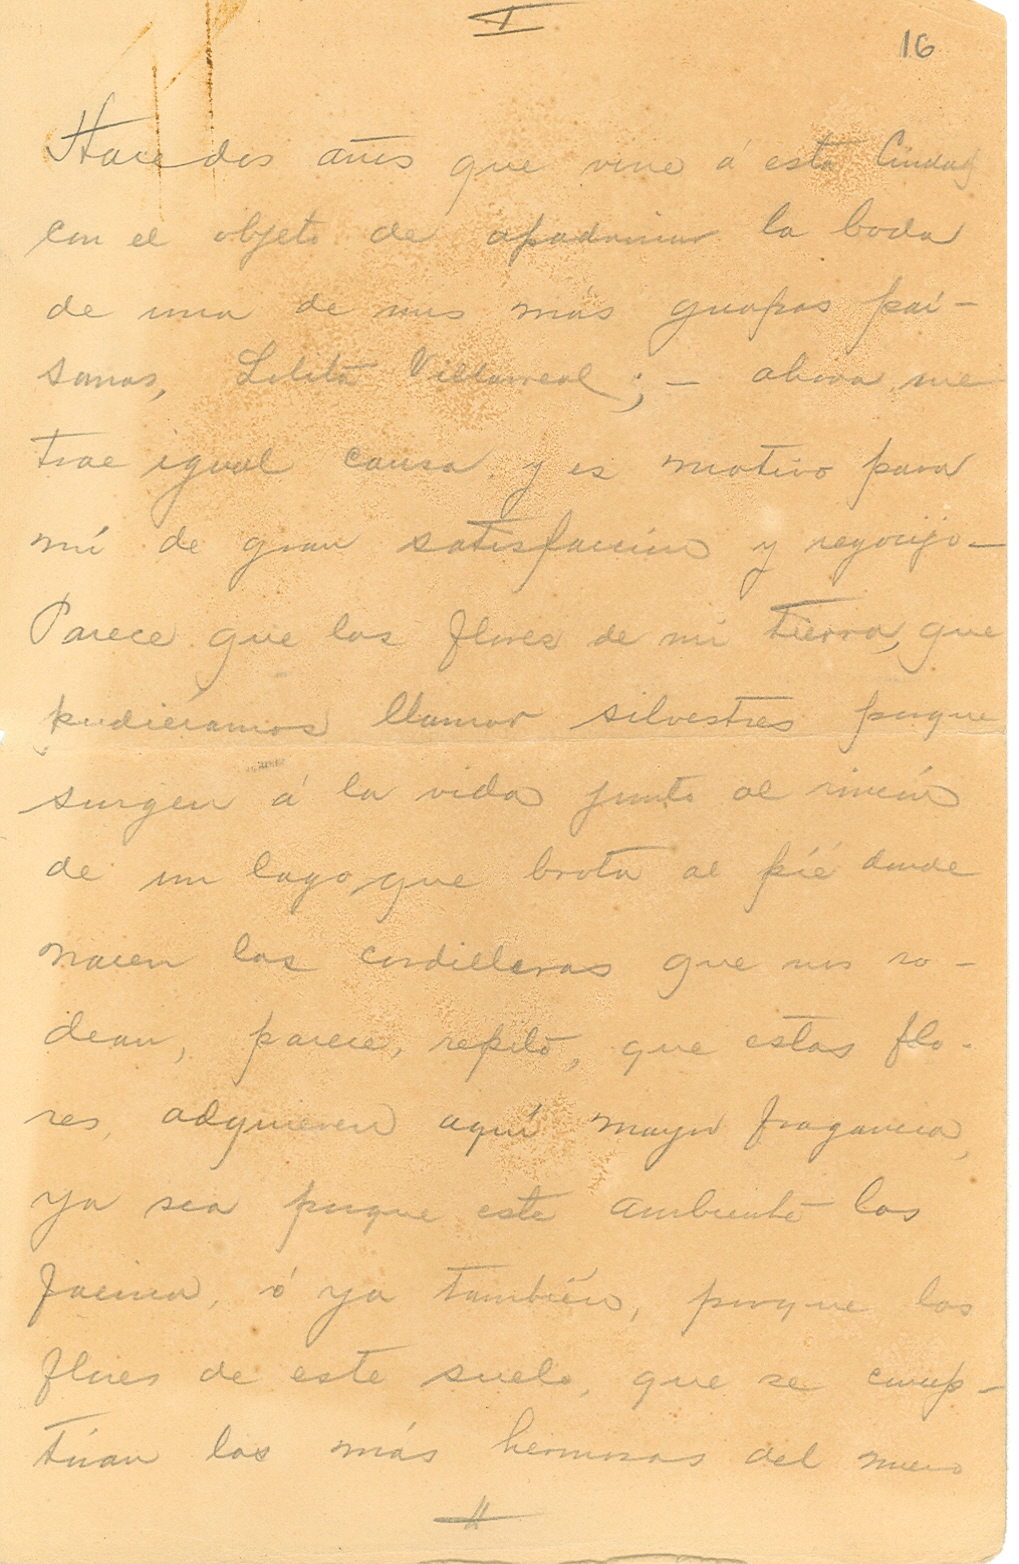 I
16
Hace dos años que vine á esta Ciudad
con el objeto de apadrinar la boda
de una de mis más guapas pai-
sanas, Lolita Villarreal; — ahora me
trae igual causa y es motivo para
mí de gran satisfaccion y regocijo—
Parece que las flores de mi tierra, que
pudiéramos llamar silvestres porque
surgen á la vida junto al rincón
de un lago que brota al pié donde
nacen las cordilleras que nos ro-
dean, parece, repito, que estas flo-
res, adquieren aquí mayor fragancia,
ya sea porque este ambiente las
ó ya también, porque las
flores de este suelo, que se concep-
túan las más hermosas del nuevo